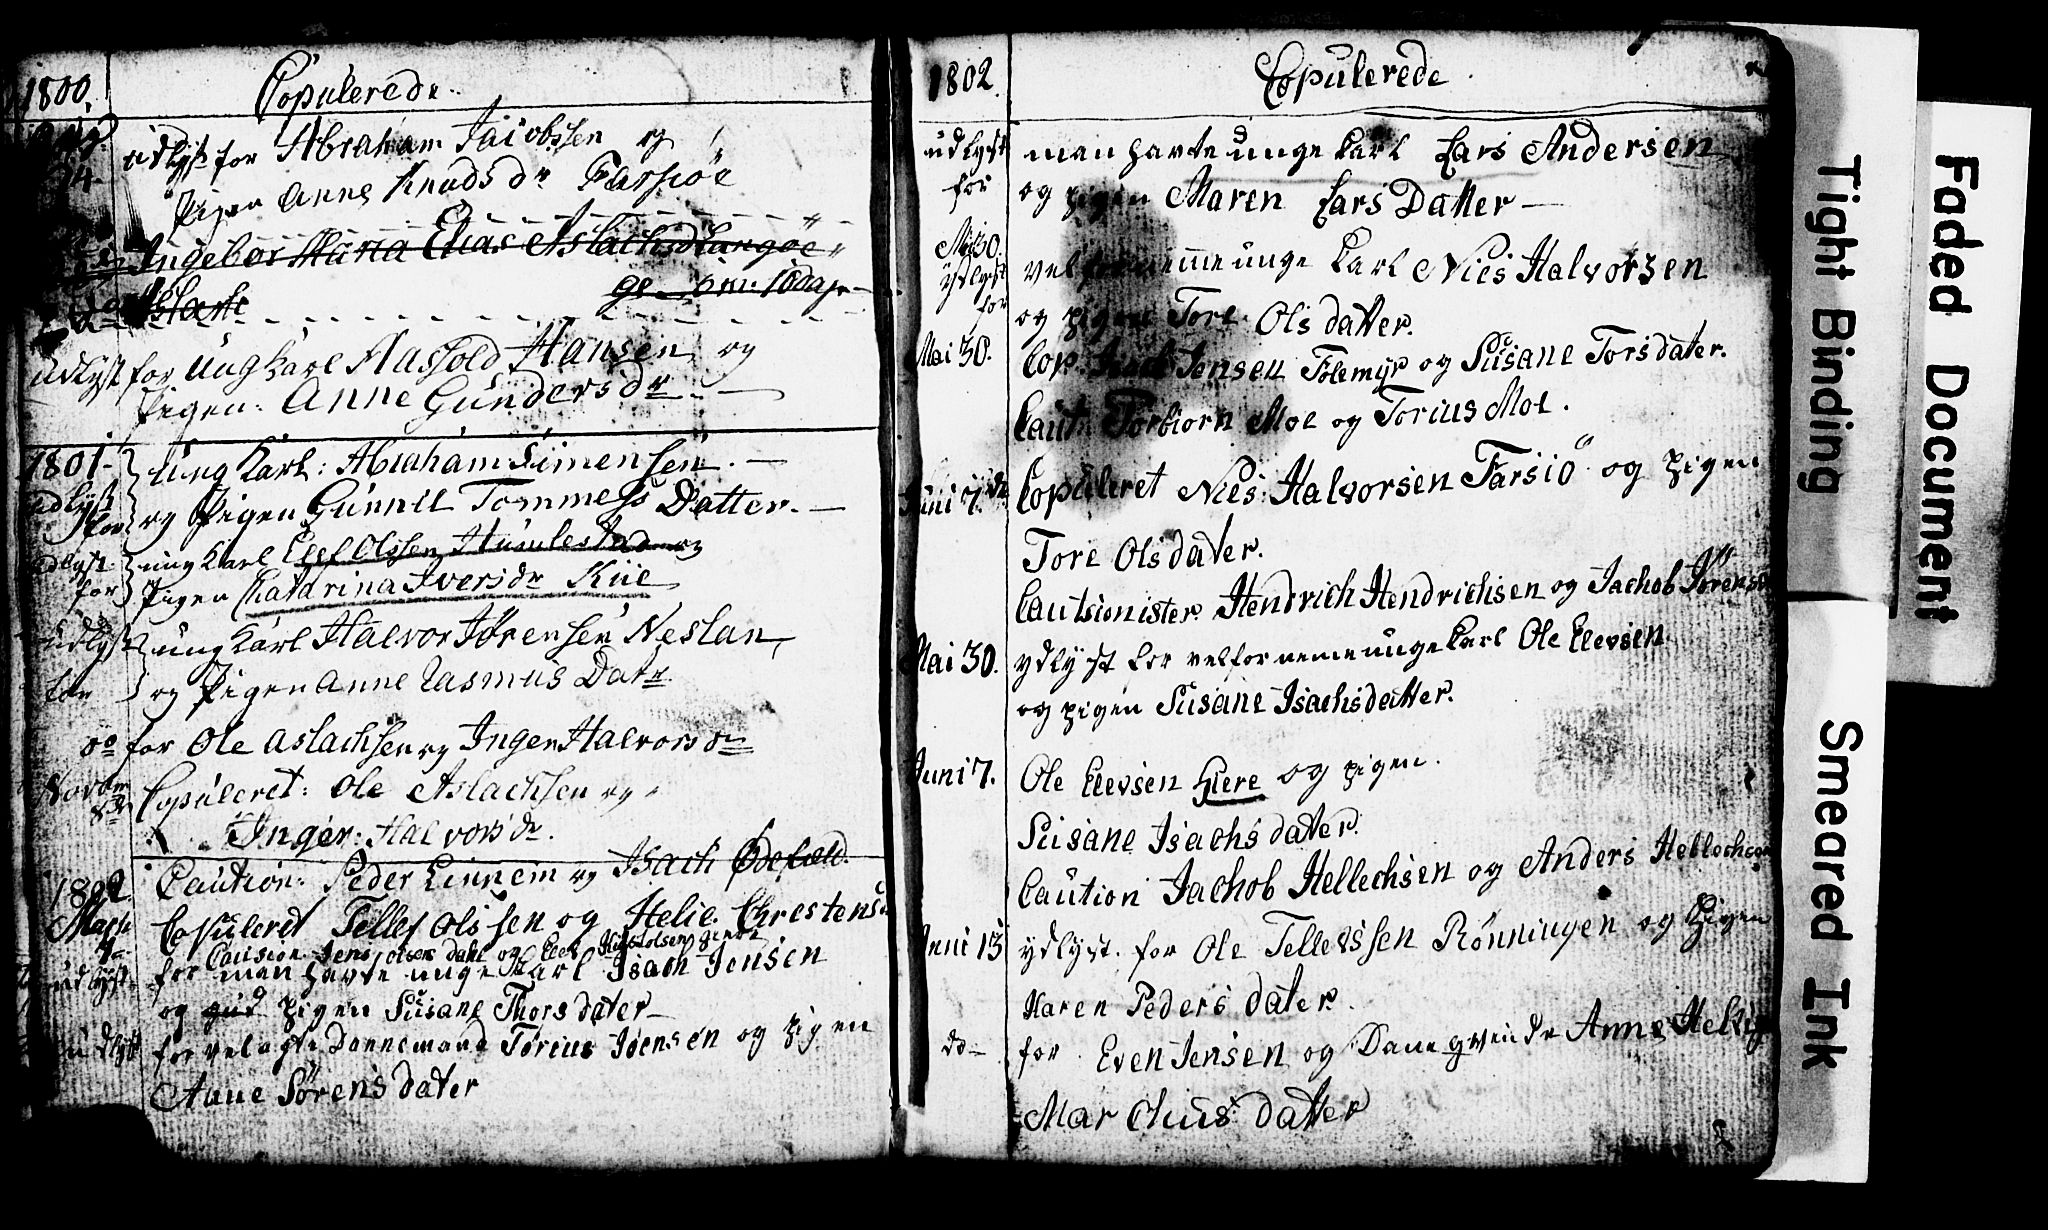 1800. Copulerede.
udlyst for Abraham Jacobssen og
24. Pigen Anne Knuds dr Farsiöe
Ingebor Maria Elias Aslachsd Langöe
Aslach 16 dage
udlyst for ung Karl Aassold Hansen og
Pigen: Anne Gunders dr
1801. ung Karl: Abraham Simensen.
udlyst for og Pigen Gunnil Tommess Datter.
udlyst for ung Karl Elef Olssen Humlestad og
Pigen Chatarina Ivers dr Kiie
udlyst ung Karl Halvor Sörensen Neslan
for og Pigen Anne Rasmus Datr
do for Ole Aslachsen og Inger Halvors dr
Novbr Copuleret: Ole Aslachsen og
8de Inger: Halvors dr.
1802. Caution: Peder Linnem og Isach Ödefield.
Marti Copuleret Tellef Olssen og Helie Chrestens
4 Causion Jens Olsen Dahl og Elef
udlyst for man havte unge Karl Isach Jensen
og gud pigen Susane Thors dater
udlyst for velagte Dannemand Torius Joensen og pigen
Anne Sörens dater
1802. Copulerede.
udlyst man havte unge Karl Lars Andersen
for og pigen Maren Lars Datter
Mai 30. velfornemme unge Karl Niels Halvorsen
ydlyst for og pigen Tore Ols datter.
Mai 30. Cop. Isach Jensen Tolemyr og Susane Tors dater.
Caut: Torbiorn Moe og Torius Moe.
Juni 7de Copuleret Niels Halvorsen Farsiö og pigen
Tore Ols dater.
Cautsionister Hendrich Hendrichsen og Jachob Sörensen
Mai 30. ydlyst for velforneme unge Karl Ole Elevsen
og pigen Susane Isachs datter.
Juni 7. Ole Elevsen Giere og pigen.
Susane Isachs dater.
Caution Jachob Hellechsen og Anders Hellechsen
Juni 13 ydlyst. for Ole Tellevssen Rönningen og Pigen
Karen Peders dater.
do for Even Jensen og Dane qvinde Anne Helvig
Marchus datter
Tight Binding
Faded Document
Smeared Ink